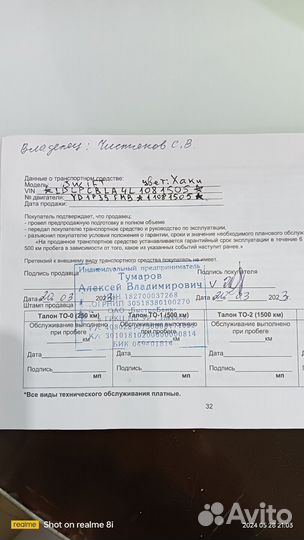 Владелец: Чистяков С.В
Данные о транспортном средстве:
Модель: SWIFT цвет: Хаки
VIN
№ двигателя:
Дата продажи:
Покупатель подтверждает, что продавец:
- провел предпродажную подготовку в полном объеме
- передал покупателю транспортное средство и руководство по эксплуатации,
- разъяснил покупателю условия по гарантии, сроки и значение необходимого планового обслуживания
«На проданное транспортное средство устанавливается гарантийный срок эксплуатации в течение 6
500 км пробега в зависимости от того, какое из указанных событий наступит ранее.»
Претензий к внешнему виду транспортного средства покупатель не имеет.
Индивидуальный предприниматель
Подпись продавца Подпись покупателя
Тумаров
Алексей Владимирович
Дата 202 Дата 202
Штамп продавца
ИНН 182700037268
Талон ТО-0 (250 км) Талон ТО-1 (500 км) Талон ТО-2 (1500 км)
Обслуживание выполнено Обслуживание выполнено Обслуживание выполнено
при пробеге при пробеге при пробеге
км км
Дата Дата Дата
Подпись Подпись Подпись
мп мп мп
*Все виды технического обслуживания платные.
32
realme Shot on realme 8i
2024 05 28 21:05
Avito